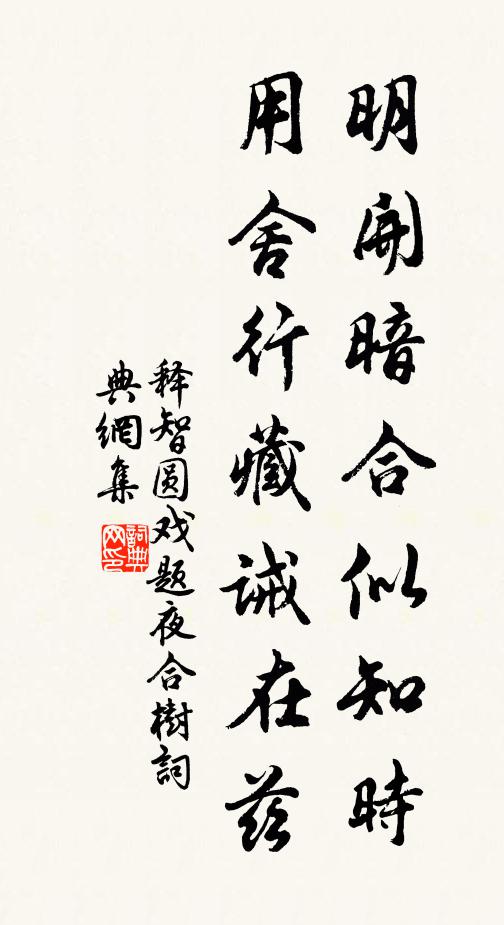 明開暗合似知時
用舍行藏誡在茲
释智圆戏题夜合樹詞
典網集
詞典网印